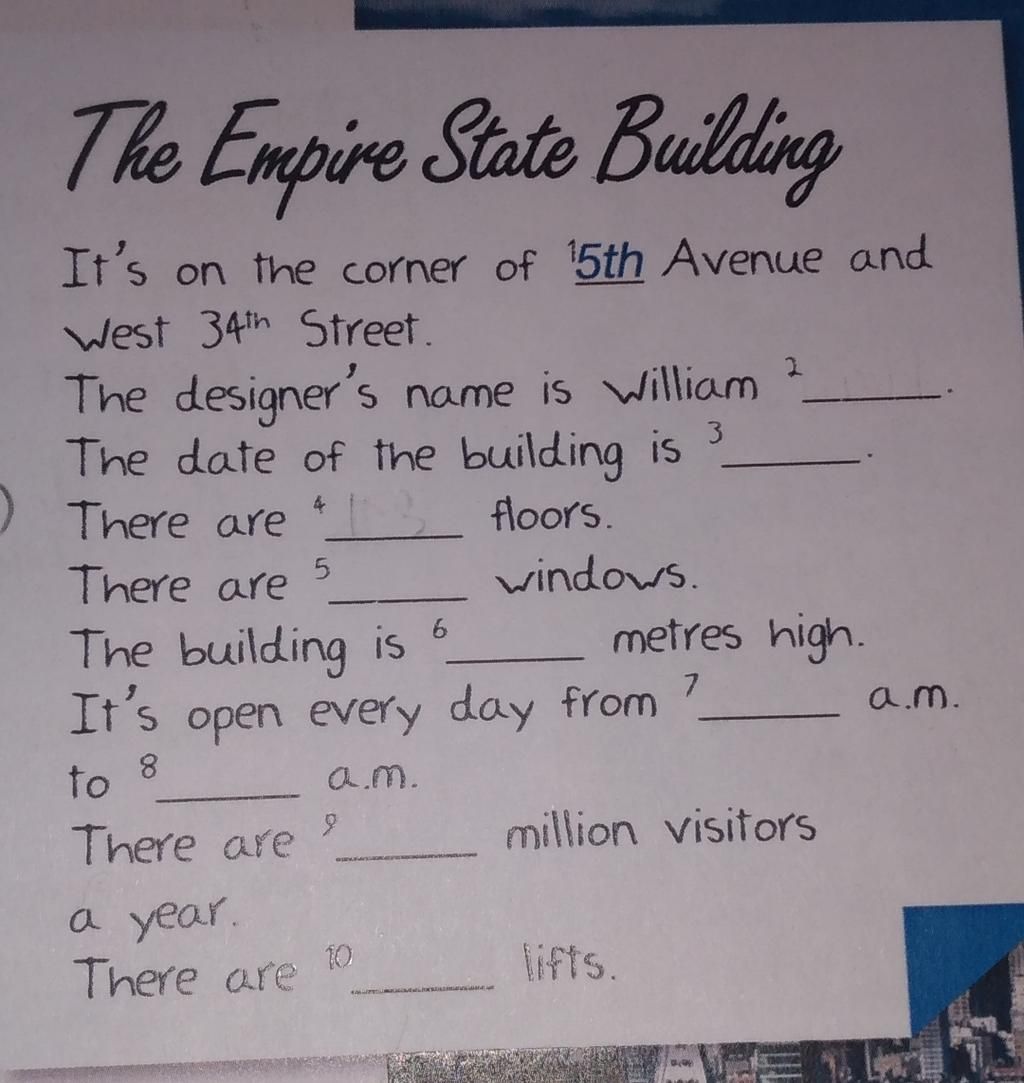 The Empire State Building
It's on the corner of ¹5th Avenue and
West 34th Street.
The designer's name is William ²______.
The date of the building is ³______.
There are ⁴______ floors.
There are ⁵______ windows.
The building is ⁶______ metres high.
It's open every day from ⁷______ a.m.
to ⁸______ a.m.
There are ⁹______ million visitors
a year.
There are ¹⁰______ lifts.